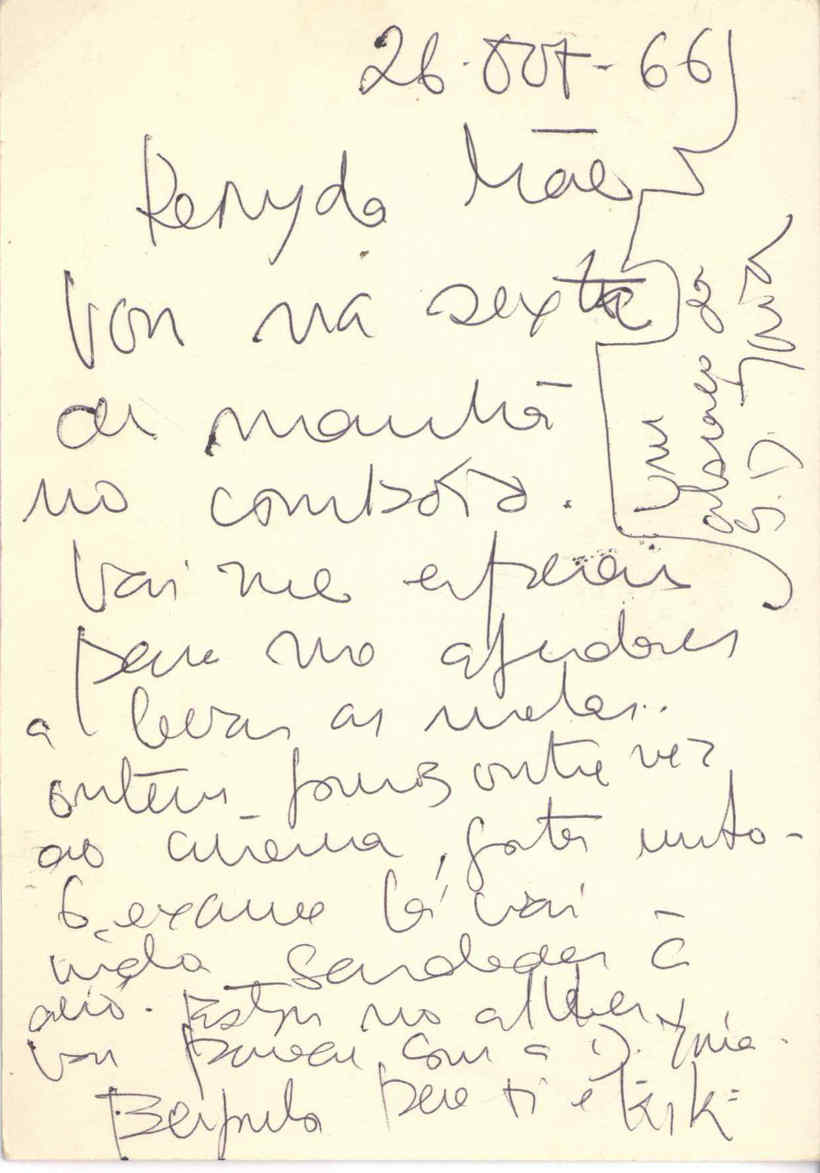 26-OUT-66
Mãe
Vou na sexta
de manhã
no combóio.
Vai me esperar
para me ajudares
a levar as malas..
ontem fomos outra vez
ao cinema, gostei muito-
O exame lá vai
indo Saudades à
avó. Estou no atelier,
vou passear com a D.
Beijinho para ti e
Um
abraço da
S. D.